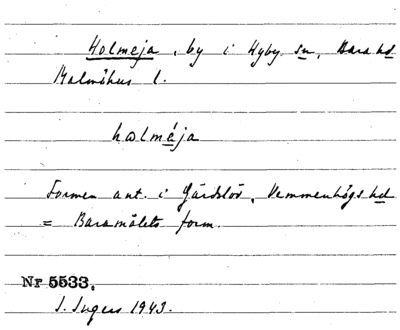 Holmeja, by i Hyby sn, Bara hd
Malmöhus l.
holméja
Formen ant. i Gärdslöv, Vemmenhögs hd
= Baramålets form.
Nr 5533.
I. Ingers 1943.